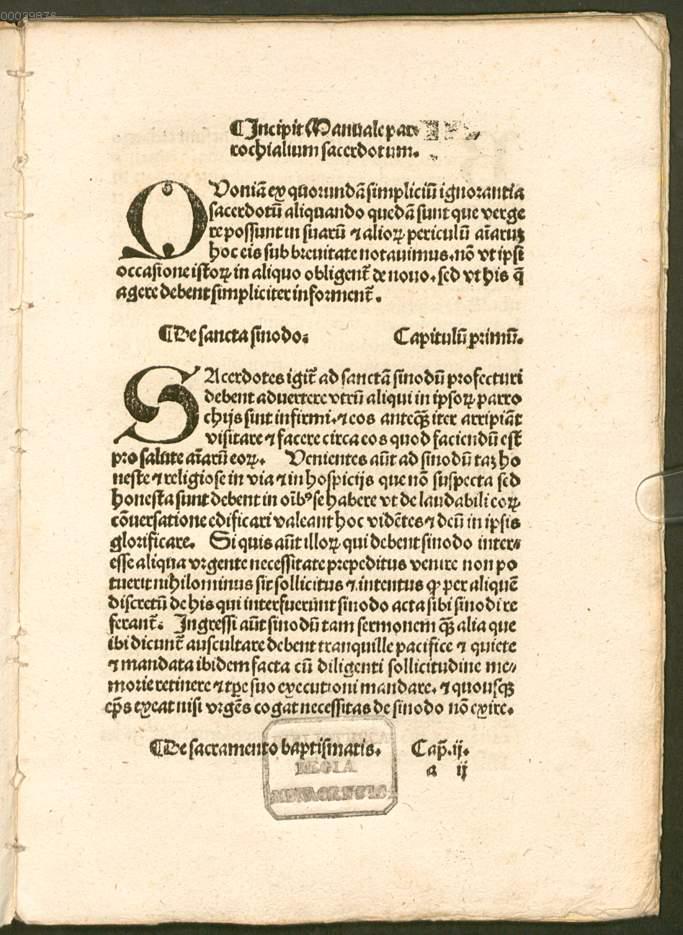 00029876
¶Incipit Manuale par⸗
rochialium sacerdotum.
QVoniã ex quorundã simpliciũ ignorantia
sacerdotũ aliquando quedã sunt que verge
re possunt in suarũ ⁊ alioꝝ periculũ aĩaruꝫ
hoc eis sub breuitate notauimus. nõ vt ipsi
occasione istoꝝ in aliquo obligent᷑ de nouo. sed vt his q̃
agere debent simpliciter informent᷑.
¶De sancta sinodo: Capitulũ primũ.
SAcerdotes igit᷑ ad sanctã sinodũ profecturi
debent aduertere vtrũ aliqui in ipsoꝝ parro
chijs sunt infirmi. ⁊ eos anteqꝫ iter arripiãt
visitare ⁊ facere circa eos quod faciendũ est
pro salute aĩarũ eoꝝ. Venientes aũt ad sinodũ taꝫ ho
neste ⁊ religiose in via ⁊ in hospicijs que nõ suspecta sed
honesta sunt debent in oĩbꝰ se habere vt de laudabili eoꝝ
cõuersatione edificari valeant hoc vidẽtes ⁊ deũ in ipsis
glorificare. Si quis aũt illoꝝ qui debent sinodo inter⸗
esse aliqua vrgente necessitate prepeditus venire non po
tuerit nihilominus sit sollicitus ⁊ intentus ꝙ per aliquẽ
discretũ de his qui interfuerunt sinodo acta sibi sinodi re
ferant᷑. Ingressi aũt sinodũ tam sermonem qꝫ alia que
ibi dicunt᷑ auscultare debent tranquille pacifice ⁊ quiete
⁊ mandata ibidem facta cũ diligenti sollicitudine me⸗
morie retinere ⁊ tꝑe suo executioni mandare. ⁊ quousqꝫ
ep̃s exeat nisi vrgẽs cogat necessitas de sinodo nõ exire.
¶De sacramento baptismatis. Cap̃. ij.
a ij
REGIA